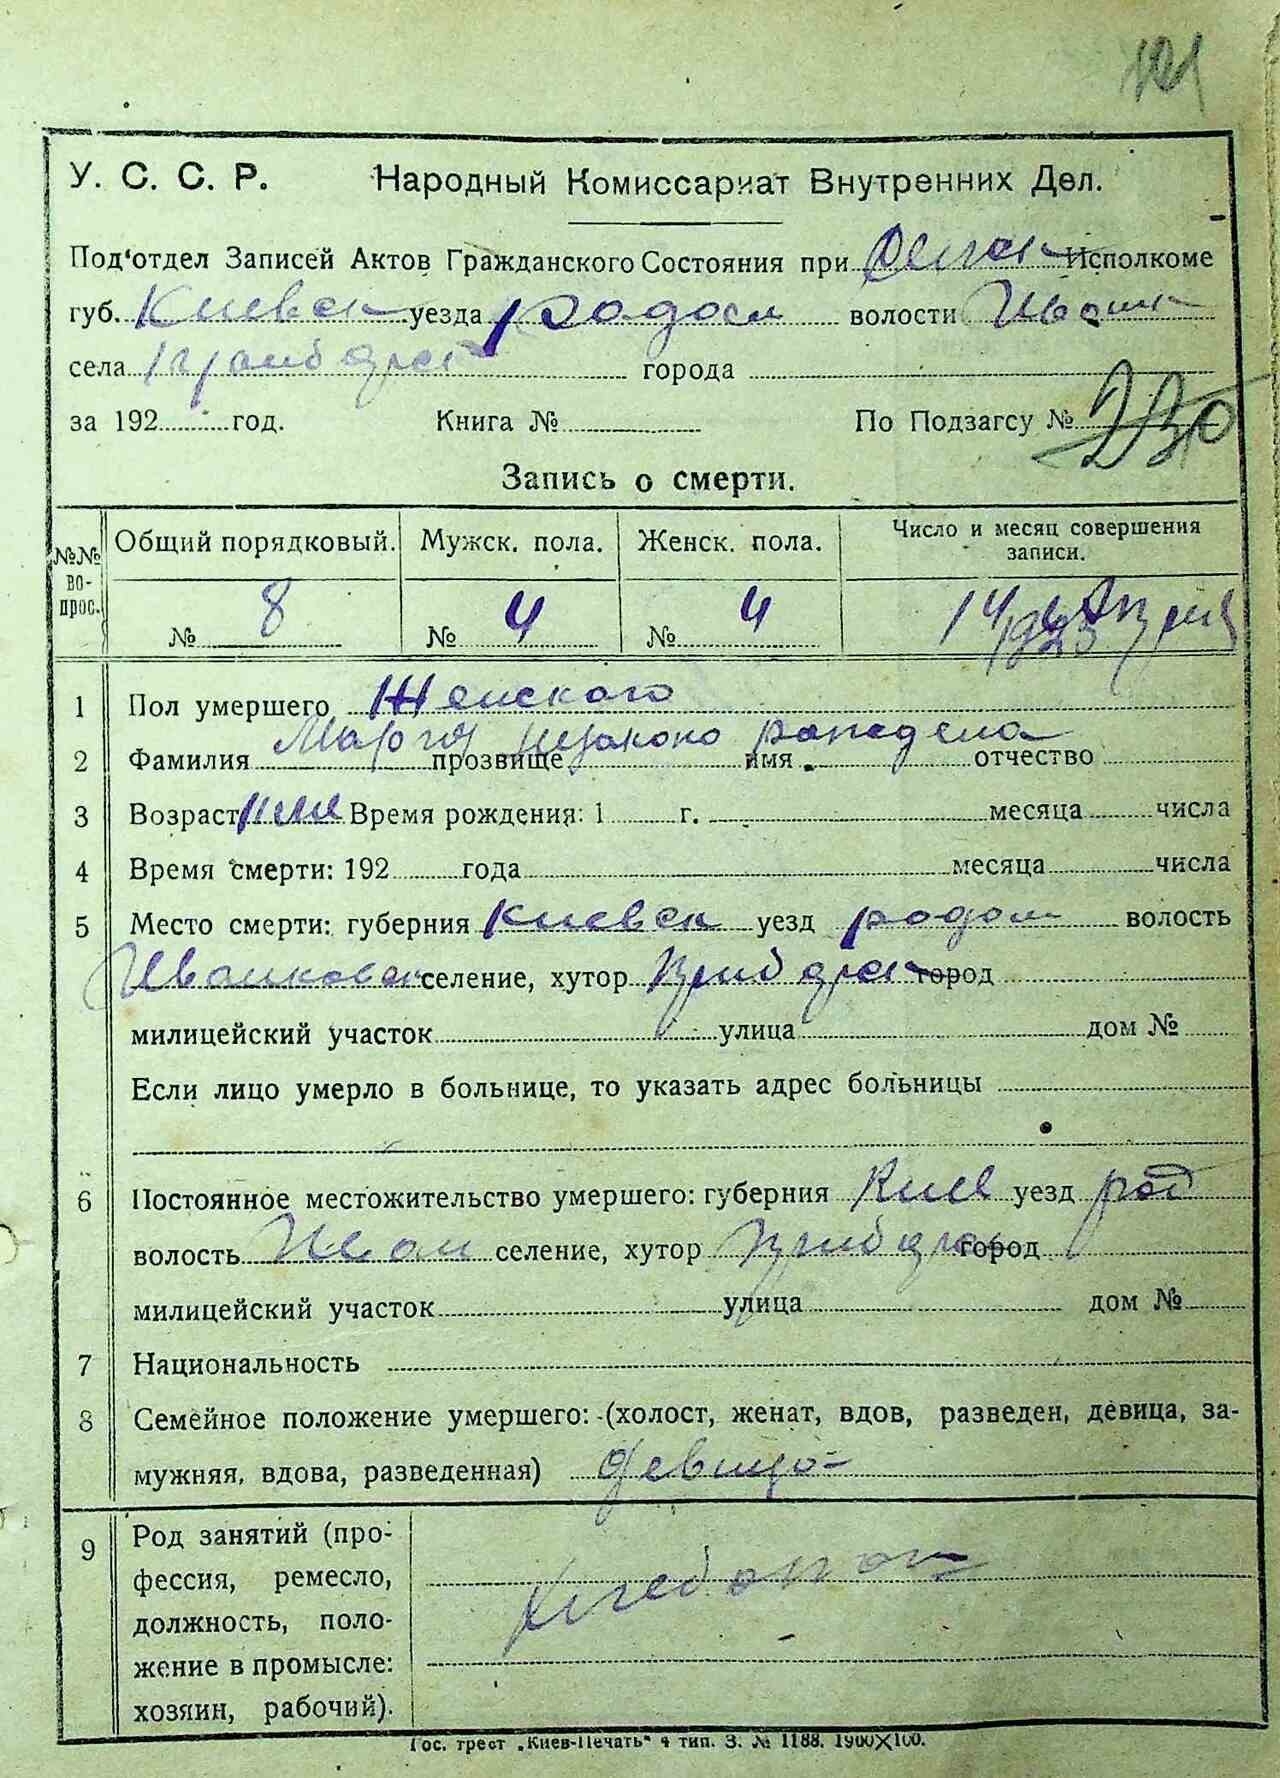 121
У. С. С. Р. Народный Комиссариат Внутренних Дел.
Под'отдел Записей Актов Гражданского Состояния при Исполкоме
губ. Киевск уезда радом волости Иванк
села города
за 192 год. Книга № По Подзагсу № 230
Запись о смерти.
№№ во- прос. Общий порядковый. Мужск. пола. Женск. пола. Число и месяц совершения записи.
№ 8 № 4 № 4 14 Апреля 1923
1 Пол умершего Женского
2 Фамилия Мария прозвище имя отчество
3 Возраст Время рождения: 1 г. месяца числа
4 Время смерти: 192 года месяца числа
5 Место смерти: губерния Киевск уезд радом волость
Иванковск селение, хутор город
милицейский участок улица дом №
Если лицо умерло в больнице, то указать адрес больницы
6 Постоянное местожительство умершего: губерния Киев уезд рад
волость Иван селение, хутор город
милицейский участок улица дом №
7 Национальность
8 Семейное положение умершего: (холост, женат, вдов, разведен, девица, за-
мужняя, вдова, разведенная) девица
9 Род занятий (про-
фессия, ремесло,
должность, поло-
жение в промысле:
хозяин, рабочий).
Хлебопаш
Гос. трест „Киев-Печать" 4 тип. З. № 1188. 1900X100.